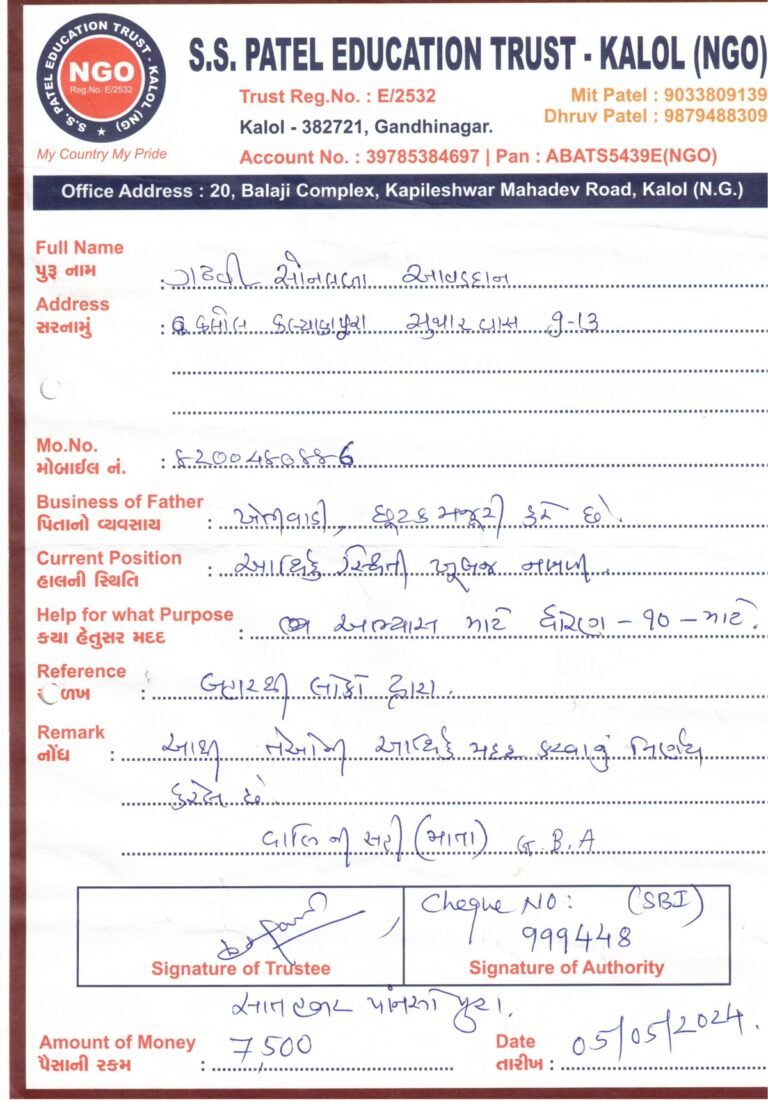 S.S. PATEL EDUCATION TRUST - KALOL (NG)
NGO
Reg.No. E/2532
My Country My Pride
S.S. PATEL EDUCATION TRUST - KALOL (NGO)
Trust Reg.No. : E/2532
Mit Patel : 9033809139
Kalol - 382721, Gandhinagar.
Dhruv Patel : 9879488309
Account No. : 39785384697 | Pan : ABATS5439E(NGO)
Office Address : 20, Balaji Complex, Kapileshwar Mahadev Road, Kalol (N.G.)
Full Name
પુરૂ નામ : ગઢવી સોનલબા આવડદાન
Address
સરનામું : કલોલ કલ્યાણપુરા સુથારવાસ ૧-૧૩
Mo.No.
મોબાઈલ નં. :
Business of Father
પિતાનો વ્યવસાય : ખેતીવાડી, છૂટક મજૂરી કરે છે.
Current Position
હાલની સ્થિતિ : આર્થિક સ્થિતી ખૂબજ નબળી.
Help for what Purpose
કયા હેતુસર મદદ : અભ્યાસ માટે ધોરણ - ૧૦ - માટે.
Reference
ળખ : બહારથી લોકો દ્વારા.
Remark
નોંધ : આથી તેઓની આર્થિક મદદ કરવાનું નિર્ણય
કરેલ છે.
વાલિની સહી (માતા) G.B.A
Cheque NO: (SBI)
999448
Signature of Trustee
Signature of Authority
સાત હજાર પાંચસો પુરા.
Amount of Money
પૈસાની રકમ : 7,500
Date
તારીખ : 05/05/2024.